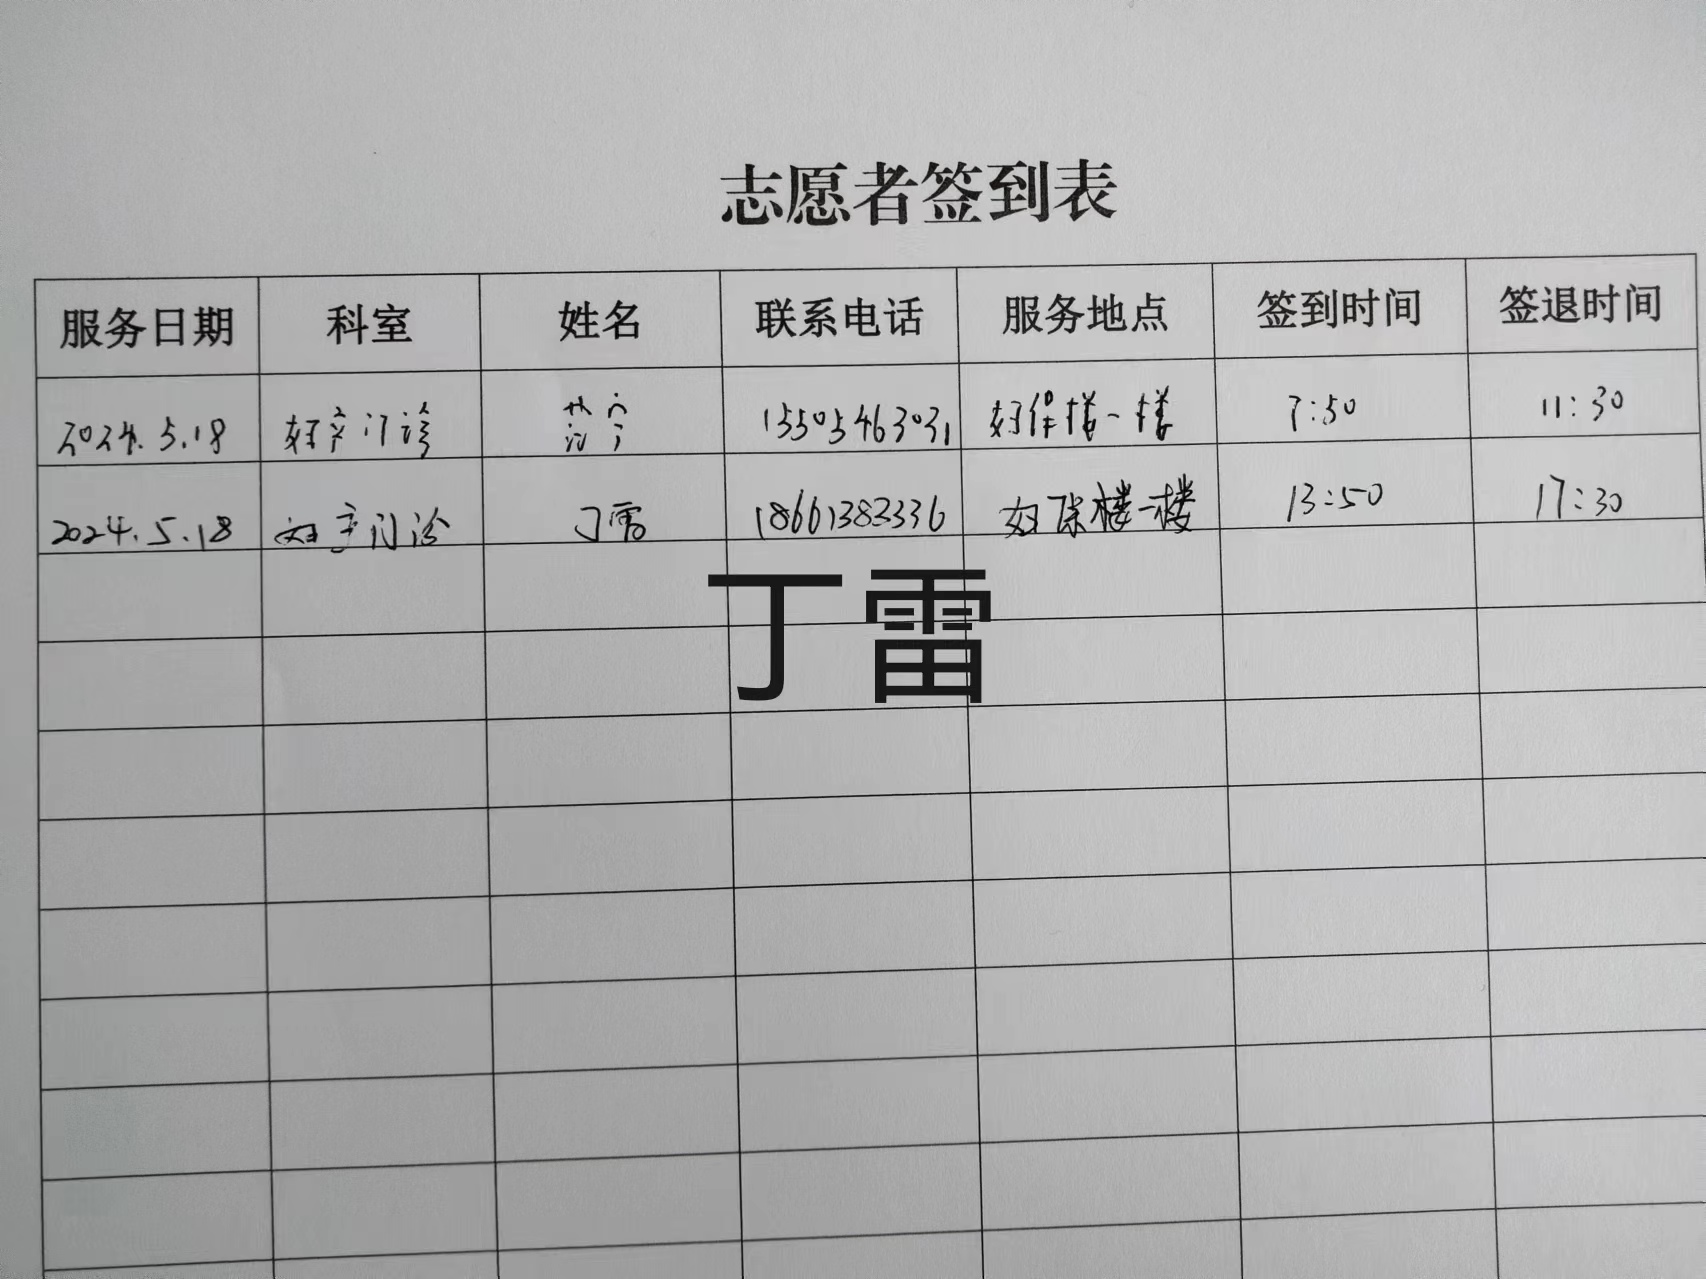 志愿者签到表
服务日期 科室 姓名 联系电话 服务地点 签到时间 签退时间
2024.5.18 妇产门诊 范宁 15505463031 妇保楼一楼 7:50 11:30
2024.5.18 妇产门诊 丁雷 18661383336 妇保楼一楼 13:50 17:30
丁雷